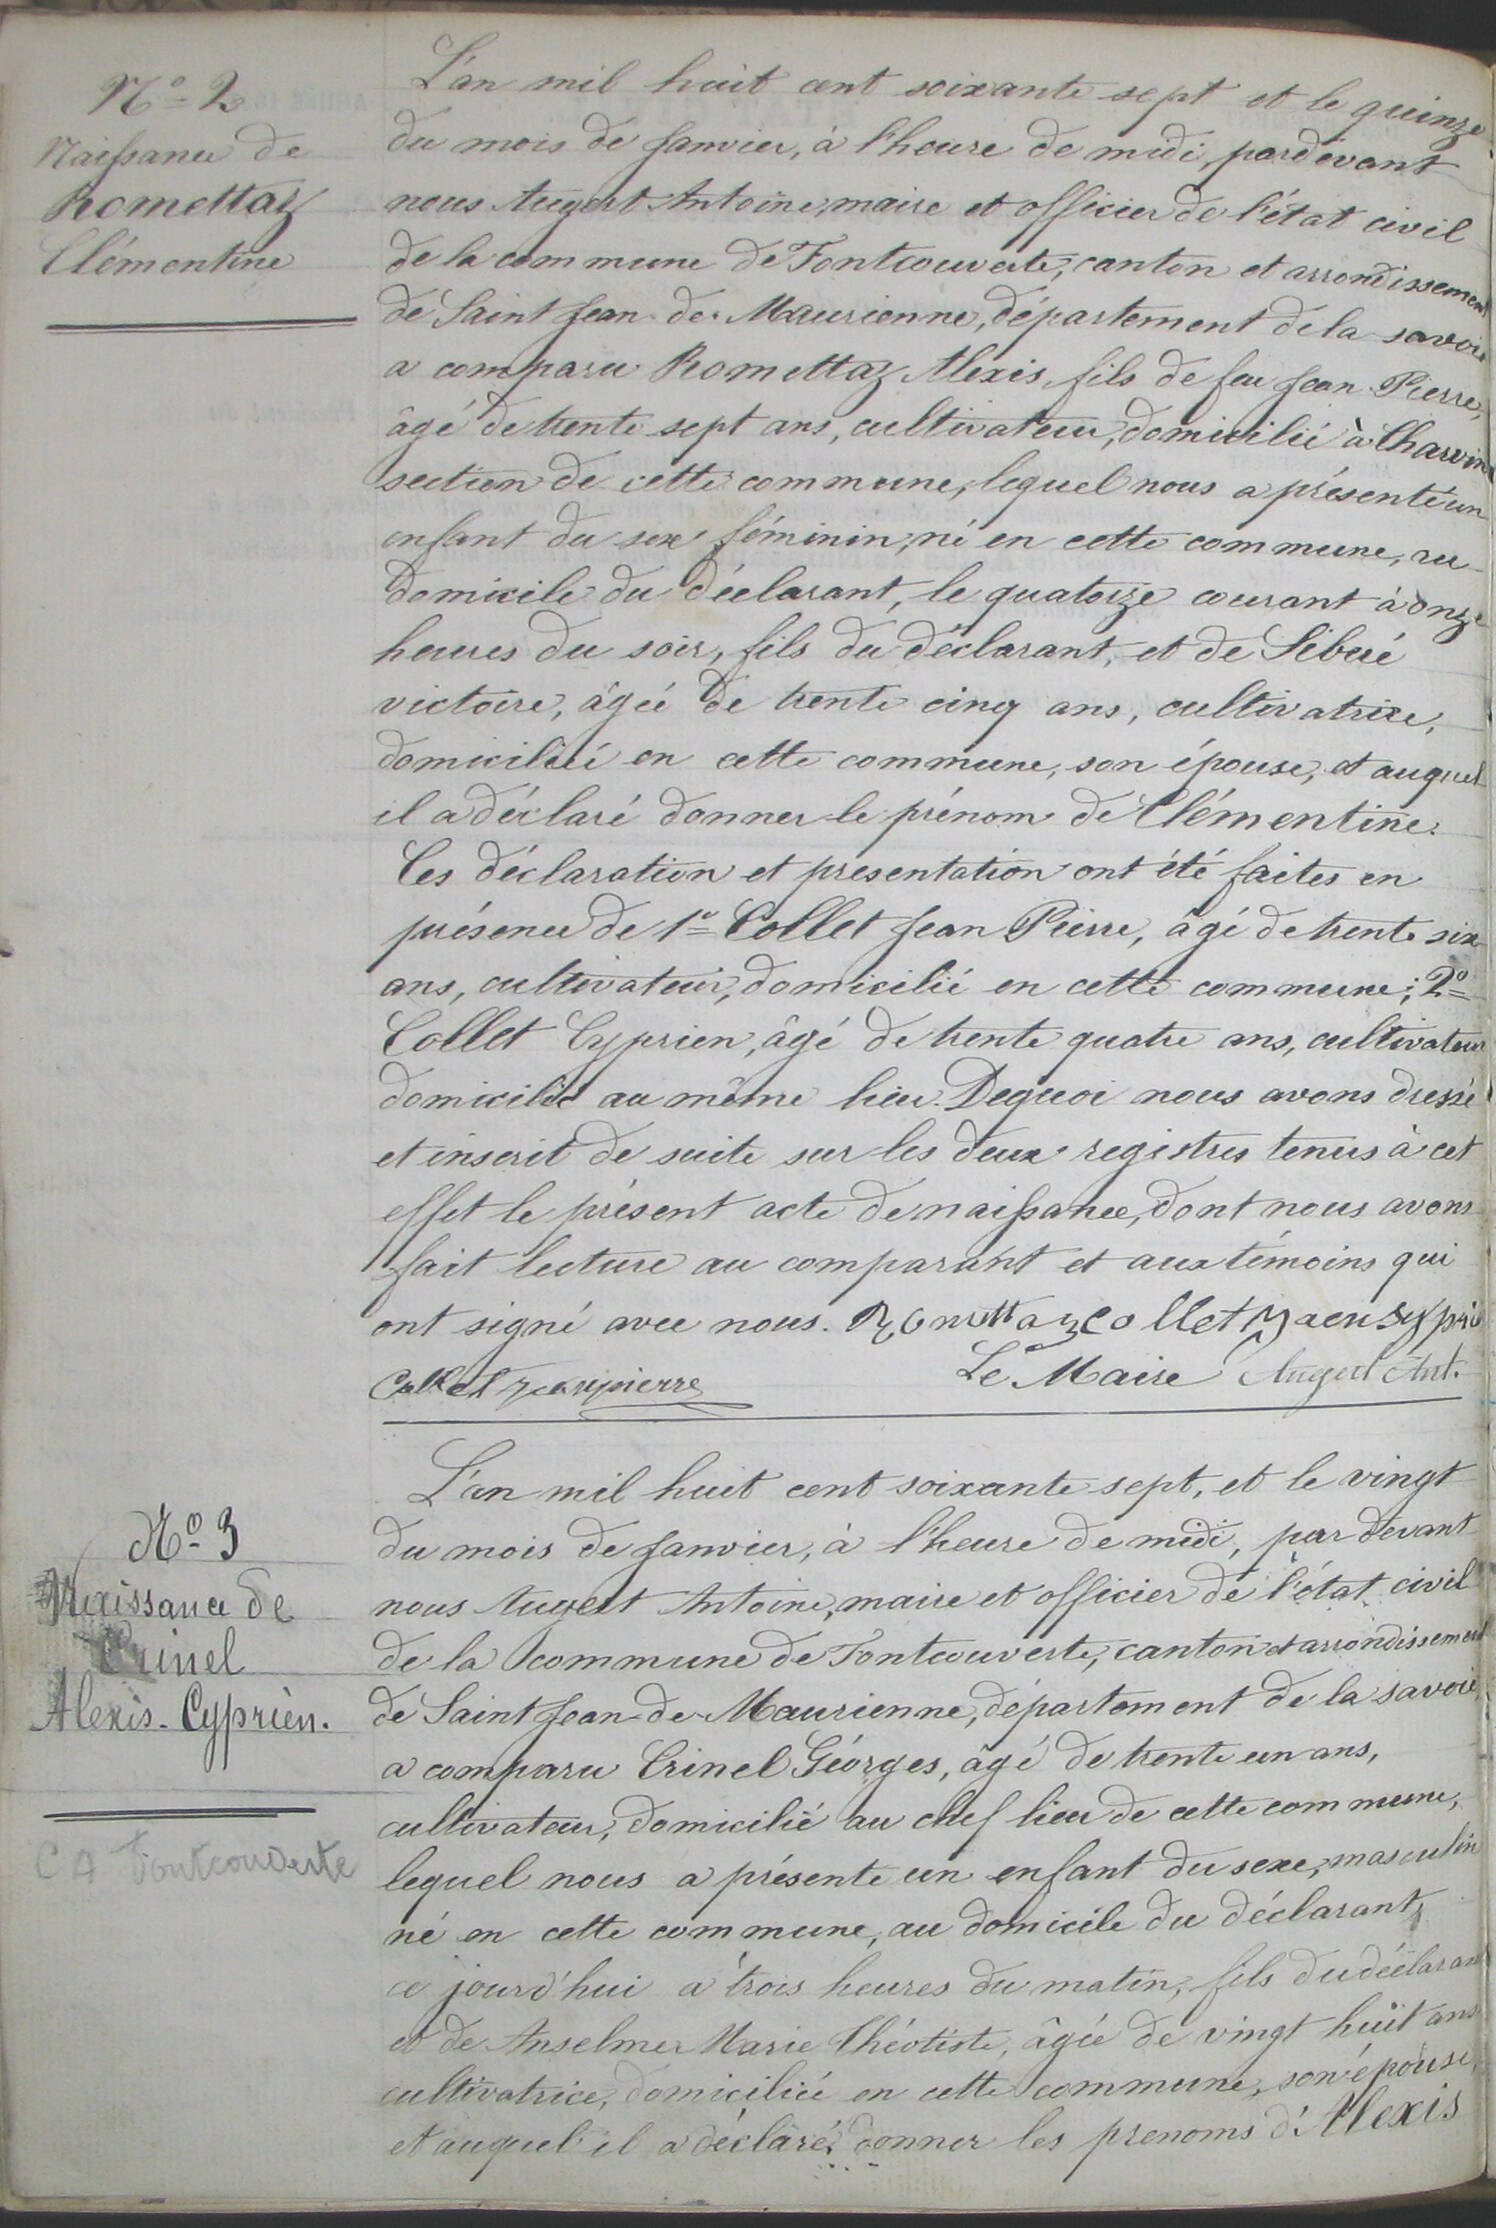 N° 2
Naissance de
Romettaz
Clémentine
L'an mil huit cent soixante sept et le quinze
du mois de Janvier, à l'heure de midi, pardevant
nous Augert Antoine, maire et officier de l'état civil
de la commune de Fontcouverte, canton et arrondissement
de Saint Jean de Maurienne, département de la savoie
a comparu Romettaz Alexis, fils de feu Jean Pierre,
âgé de trente sept ans, cultivateur, domicilié à Charvin
section de cette commune, lequel nous a présenté un
enfant du sexe féminin, né en cette commune, au
domicile du déclarant, le quatorze courant à onze
heures du soir, fils du déclarant, et de Sibué
victoire, âgée de trente cinq ans, cultivatrice,
domiciliée en cette commune, son épouse, et auquel
il a déclaré donner le prénom de Clémentine.
Ces déclaration et presentation ont été faites en
présence de 1° Collet Jean Pierre, âgé de trente six
ans, cultivateur, domicilié en cette commune; 2°
Collet Cyprien, âgé de trente quatre ans, cultivateur
domicilié au même lieu. Dequoi nous avons dressé
et inscrit de suite sur les deux registres tenus à cet
effet le présent acte de naissance, dont nous avons
fait lecture au comparant et aux témoins qui
ont signé avec nous. Romettaz Collet
Collet jeanpierre Le Maire Augert Ant.
N° 3
Naissance de
Crinel
Alexis-Cyprien.
C A Fontcouverte
L'an mil huit cent soixante sept, et le vingt
du mois de Janvier, à l'heure de midi, par devant
nous Augert Antoine, maire et officier de l'état civil
de la commune de Fontcouverte, canton et arrondissement
de Saint Jean-de-Maurienne, département de la savoie,
a comparu Crinel Géorges, âgé de trente un ans,
cultivateur, domicilié au chef lieu de cette commune,
lequel nous a présenté un enfant du sexe, masculin
né en cette commune, au domicile du déclarant,
ce jourd'hui à trois heures du matin, fils du déclarant
et de Anselme Marie Théotiste, âgée de vingt huit ans
cultivatrice, domiciliée en cette commune, son épouse,
et auquel il a déclaré donner les prenoms d'Alexis